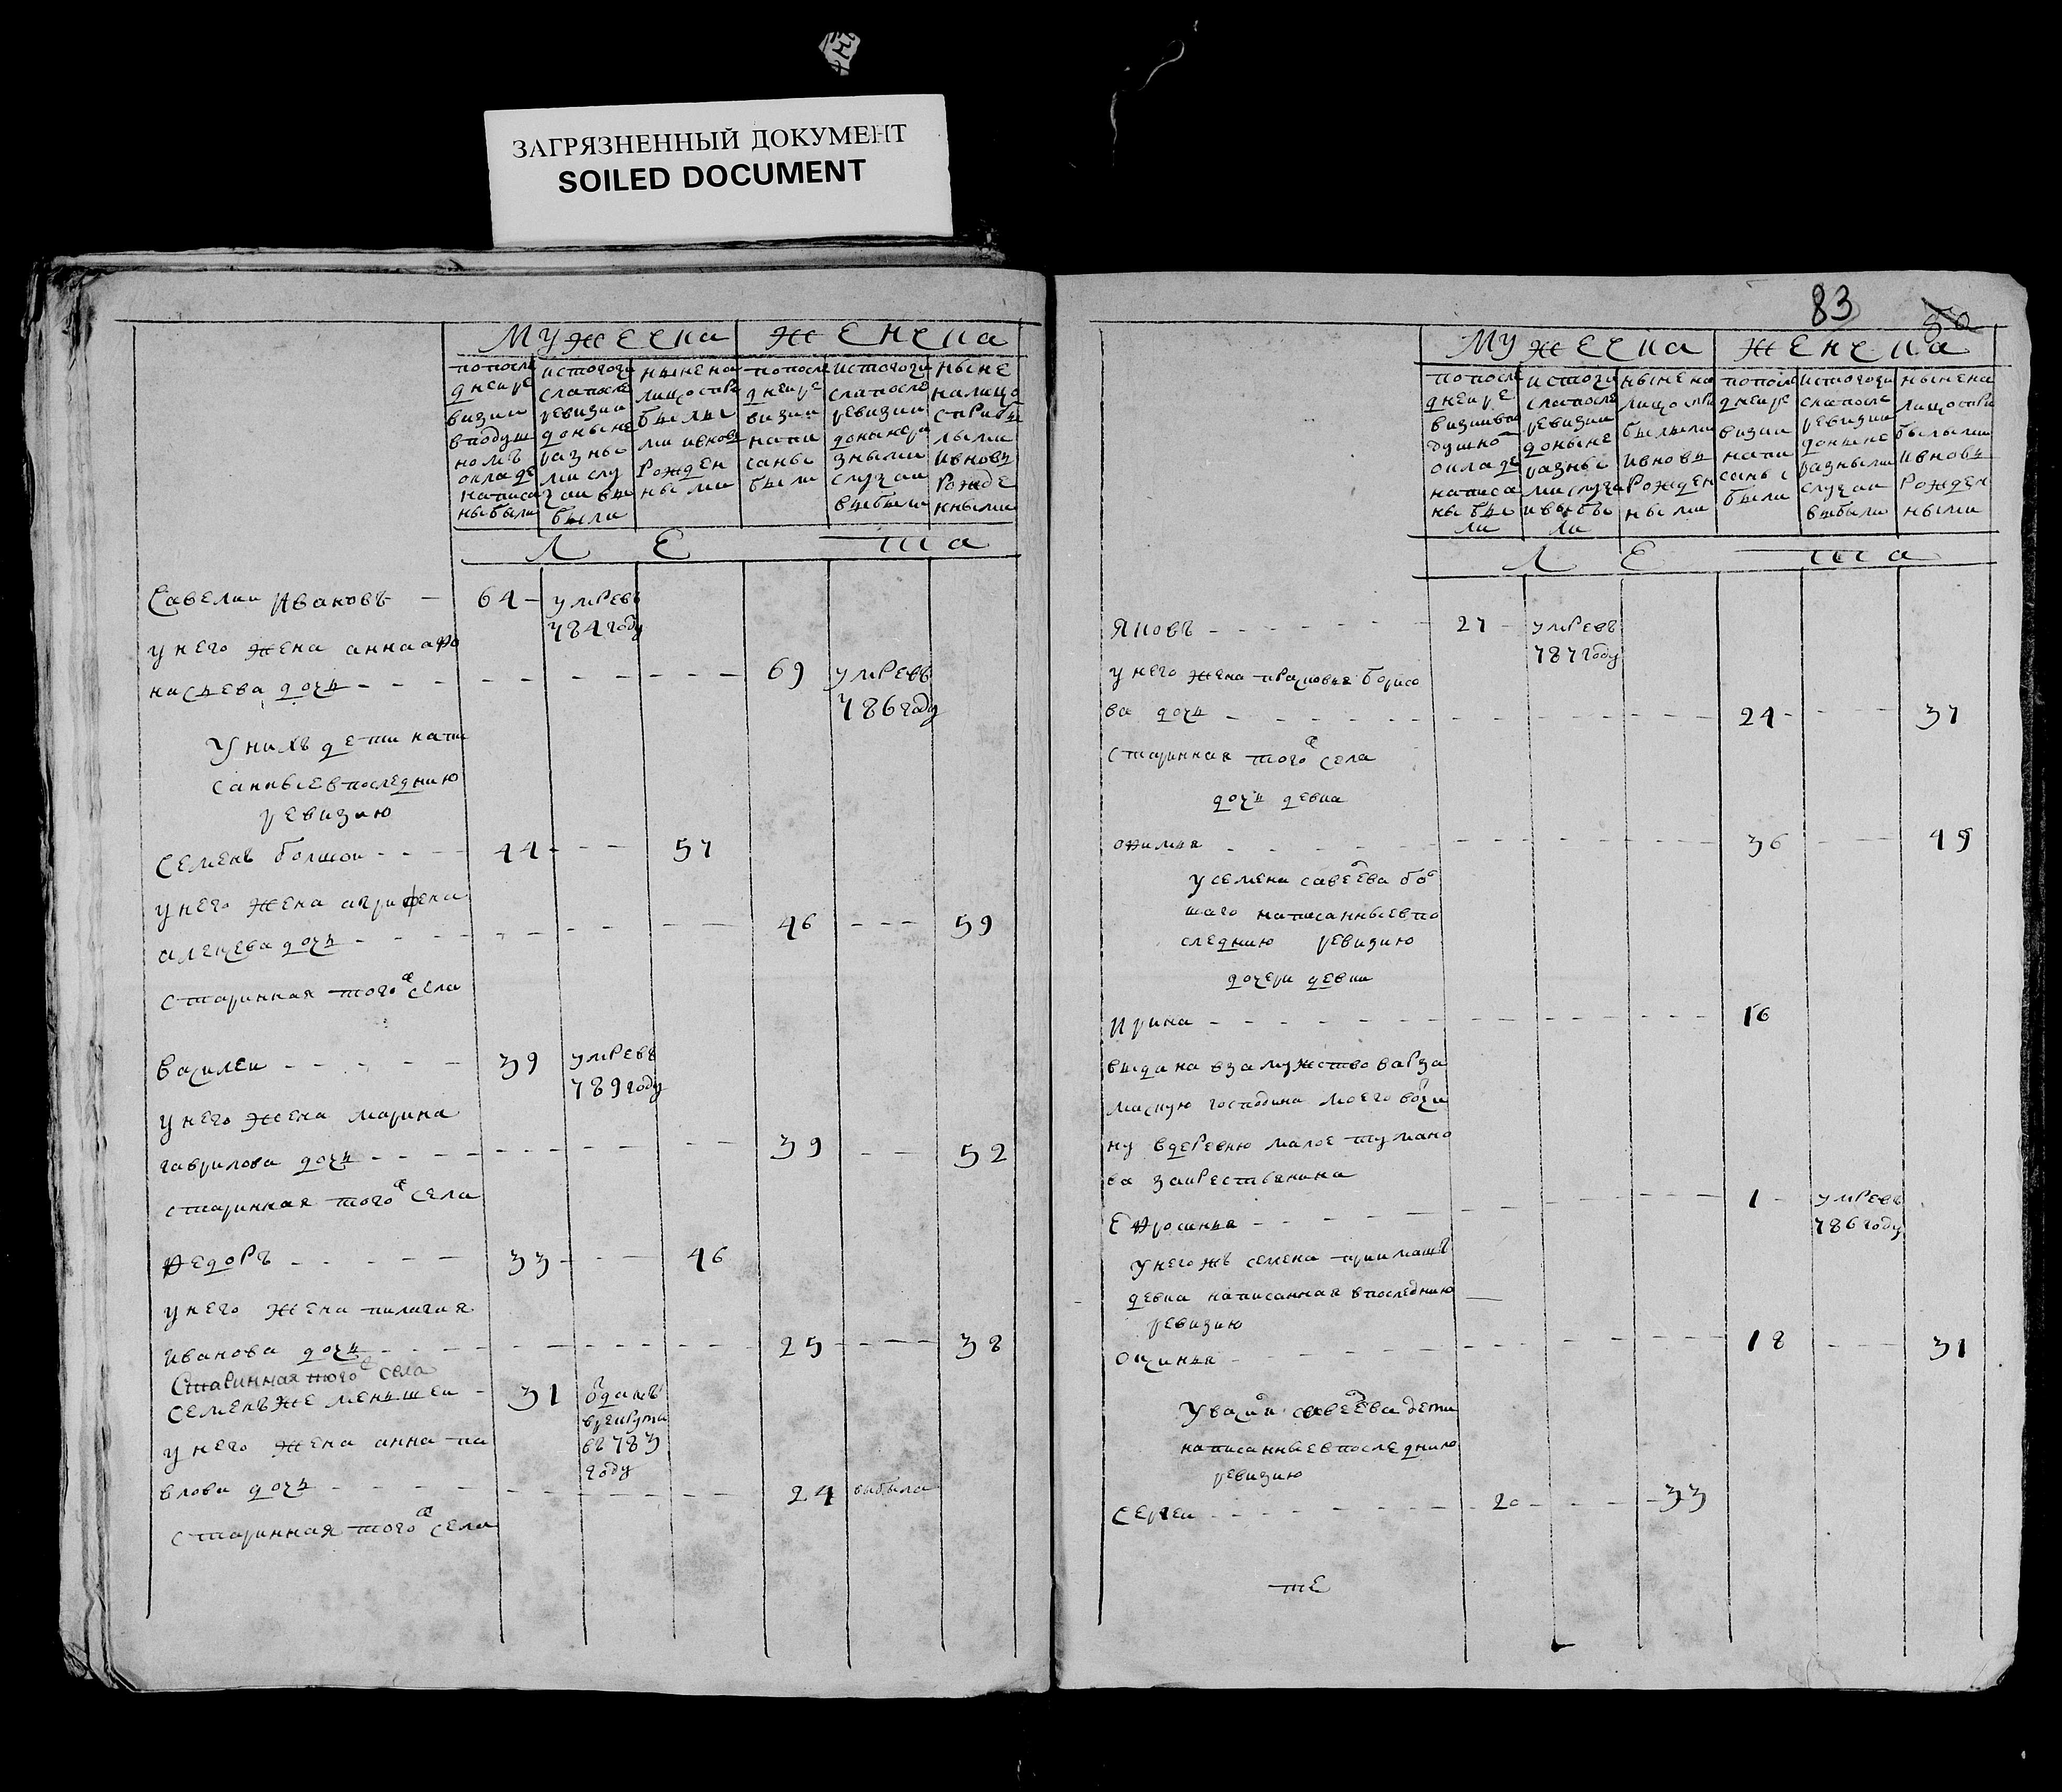 ЗАГРЯЗНЕННЫЙ ДОКУМЕНТ
SOILED DOCUMENT
Мужеска
женска
попосле
днеи ре
визии
вподуш
номъ
окладе
написа
ны были
истого чи
сла после
ревизии
доныне
разны
ми слу
чаи вы
были
ныне на
лицо спри
былы
ми ивновь
рожден
ными
попосле
днеи ре
визии
напи
саны
были
истого чи
сла после
ревизии
доныне ра
зными
случаи
выбыли
ныне
налицо
сприбы
лыми
ивновь
рожде
нными
Ле та
Савелии Ивановъ 64 умре въ
784 году
у него жена анна афо
насьева дочь 69 умре въ
786 году
У нихъ дети напи
санные в последнию
ревизию
Семенъ болшои 44 57
у него жена агрифена
алексева дочь 46 59
старинная того ж села
василеи 39 умре въ
789 году
у него жена марина
гаврилова дочь 39 52
старинная того ж села
Федоръ 33 46
у него жена пилагия
иванова дочь 25 38
Старинная того ж села
Семенъ же меньшеи 31 отданъ
врекруты
въ 783
году
у него жена анна па
влова дочь 24 выбыла
старинная того ж села
83
Мужеска
женска
попосле
днеи ре
визии впо
душно
окладе
написа
ны бы
ли
истого чи
сла после
ревизии
доныне
разны
ми случа
и выбы
ли
ныне на
лицо спри
былыми
ивновь
рожден
ными
попосле
днеи ре
визии
напи
саны
были
истого чи
сла после
ревизии
доныне
разными
случаи
выбыли
ныне на
лицо спри
былыми
ивновь
рожден
ными
Ле та
Яковъ 27 умре въ
787 году
у него жена прасковья борисо
ва дочь 24 37
старинная того ж села
дочь девка
афимья 36 49
у семена савелева бол
шаго написанные впо
следнию ревизию
дочери девки
Ирина 16
выдана взамужство варза
маскую господина моего вотчи
ну вдеревню малое тумано
ва закрестьянина
Ефросинья 1 умре въ
786 году
У него жъ семена приимашъ
девка написанная впоследнию
ревизию
Оксинья 18 31
У васи савелева дети
написанные в последнию
ревизию
Сергеи 20 33
те